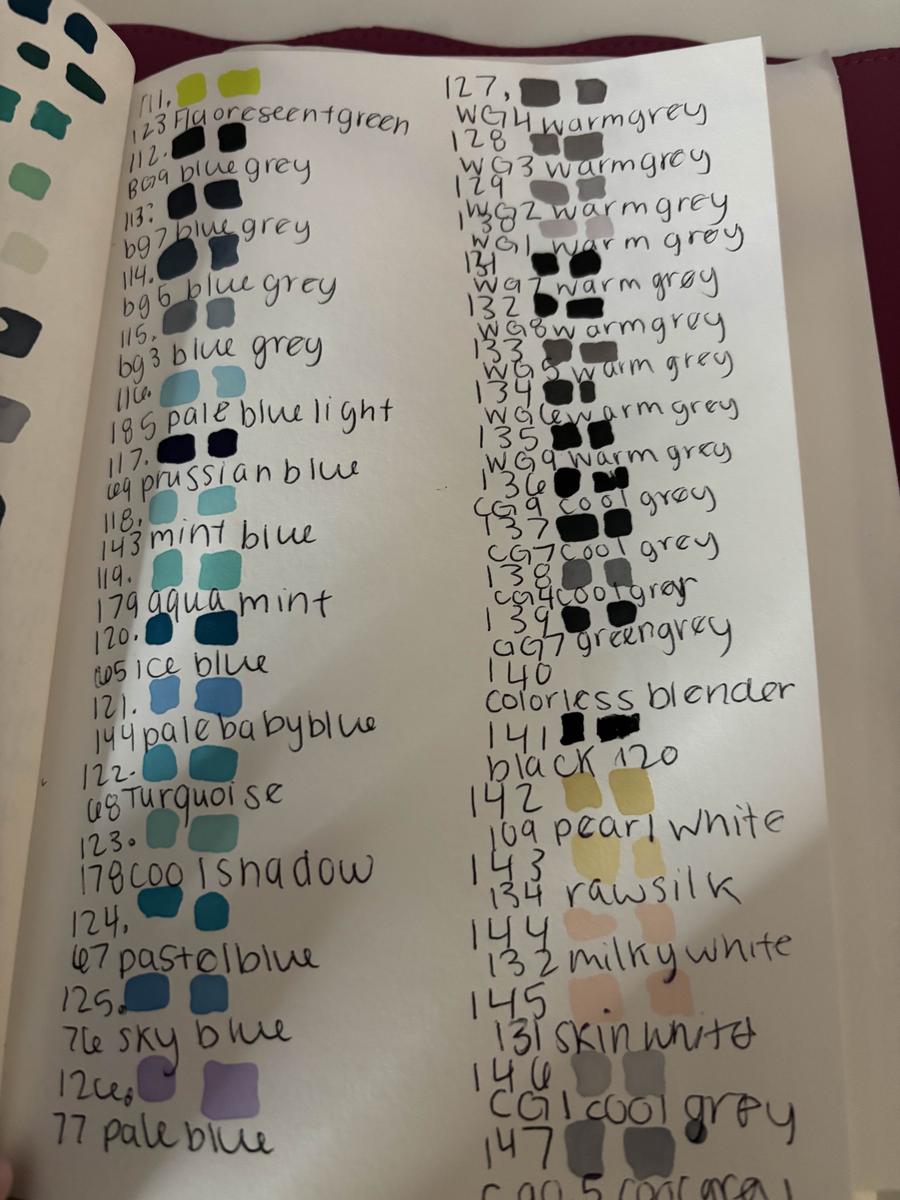 111.
123 Fluoreseent green
112.
BG9 blue grey
113.
bg7 blue grey
114.
bg5 blue grey
115.
bg3 blue grey
116.
185 pale blue light
117.
69 prussian blue
118.
143 mint blue
119.
179 aqua mint
120.
65 Ice blue
121.
144 pale baby blue
122.
68 Turquoise
123.
178 cool shadow
124.
67 pastel blue
125.
76 sky blue
126.
77 pale blue
127.
WG4 warm grey
128
WG3 warm grey
129
WG2 warm grey
130
WG1 warm grey
131
WG7 warm grey
132
WG8 warm grey
133
WG5 warm grey
134
WG6 warm grey
135
WG9 warm grey
136
CG9 cool grey
137
CG7 cool grey
138
CG4 cool grey
139
GG7 green grey
140
colorless blender
141
black 120
142
109 pearl white
143
134 raw silk
144
132 milky white
145
131 skin white
146
CG1 cool grey
147